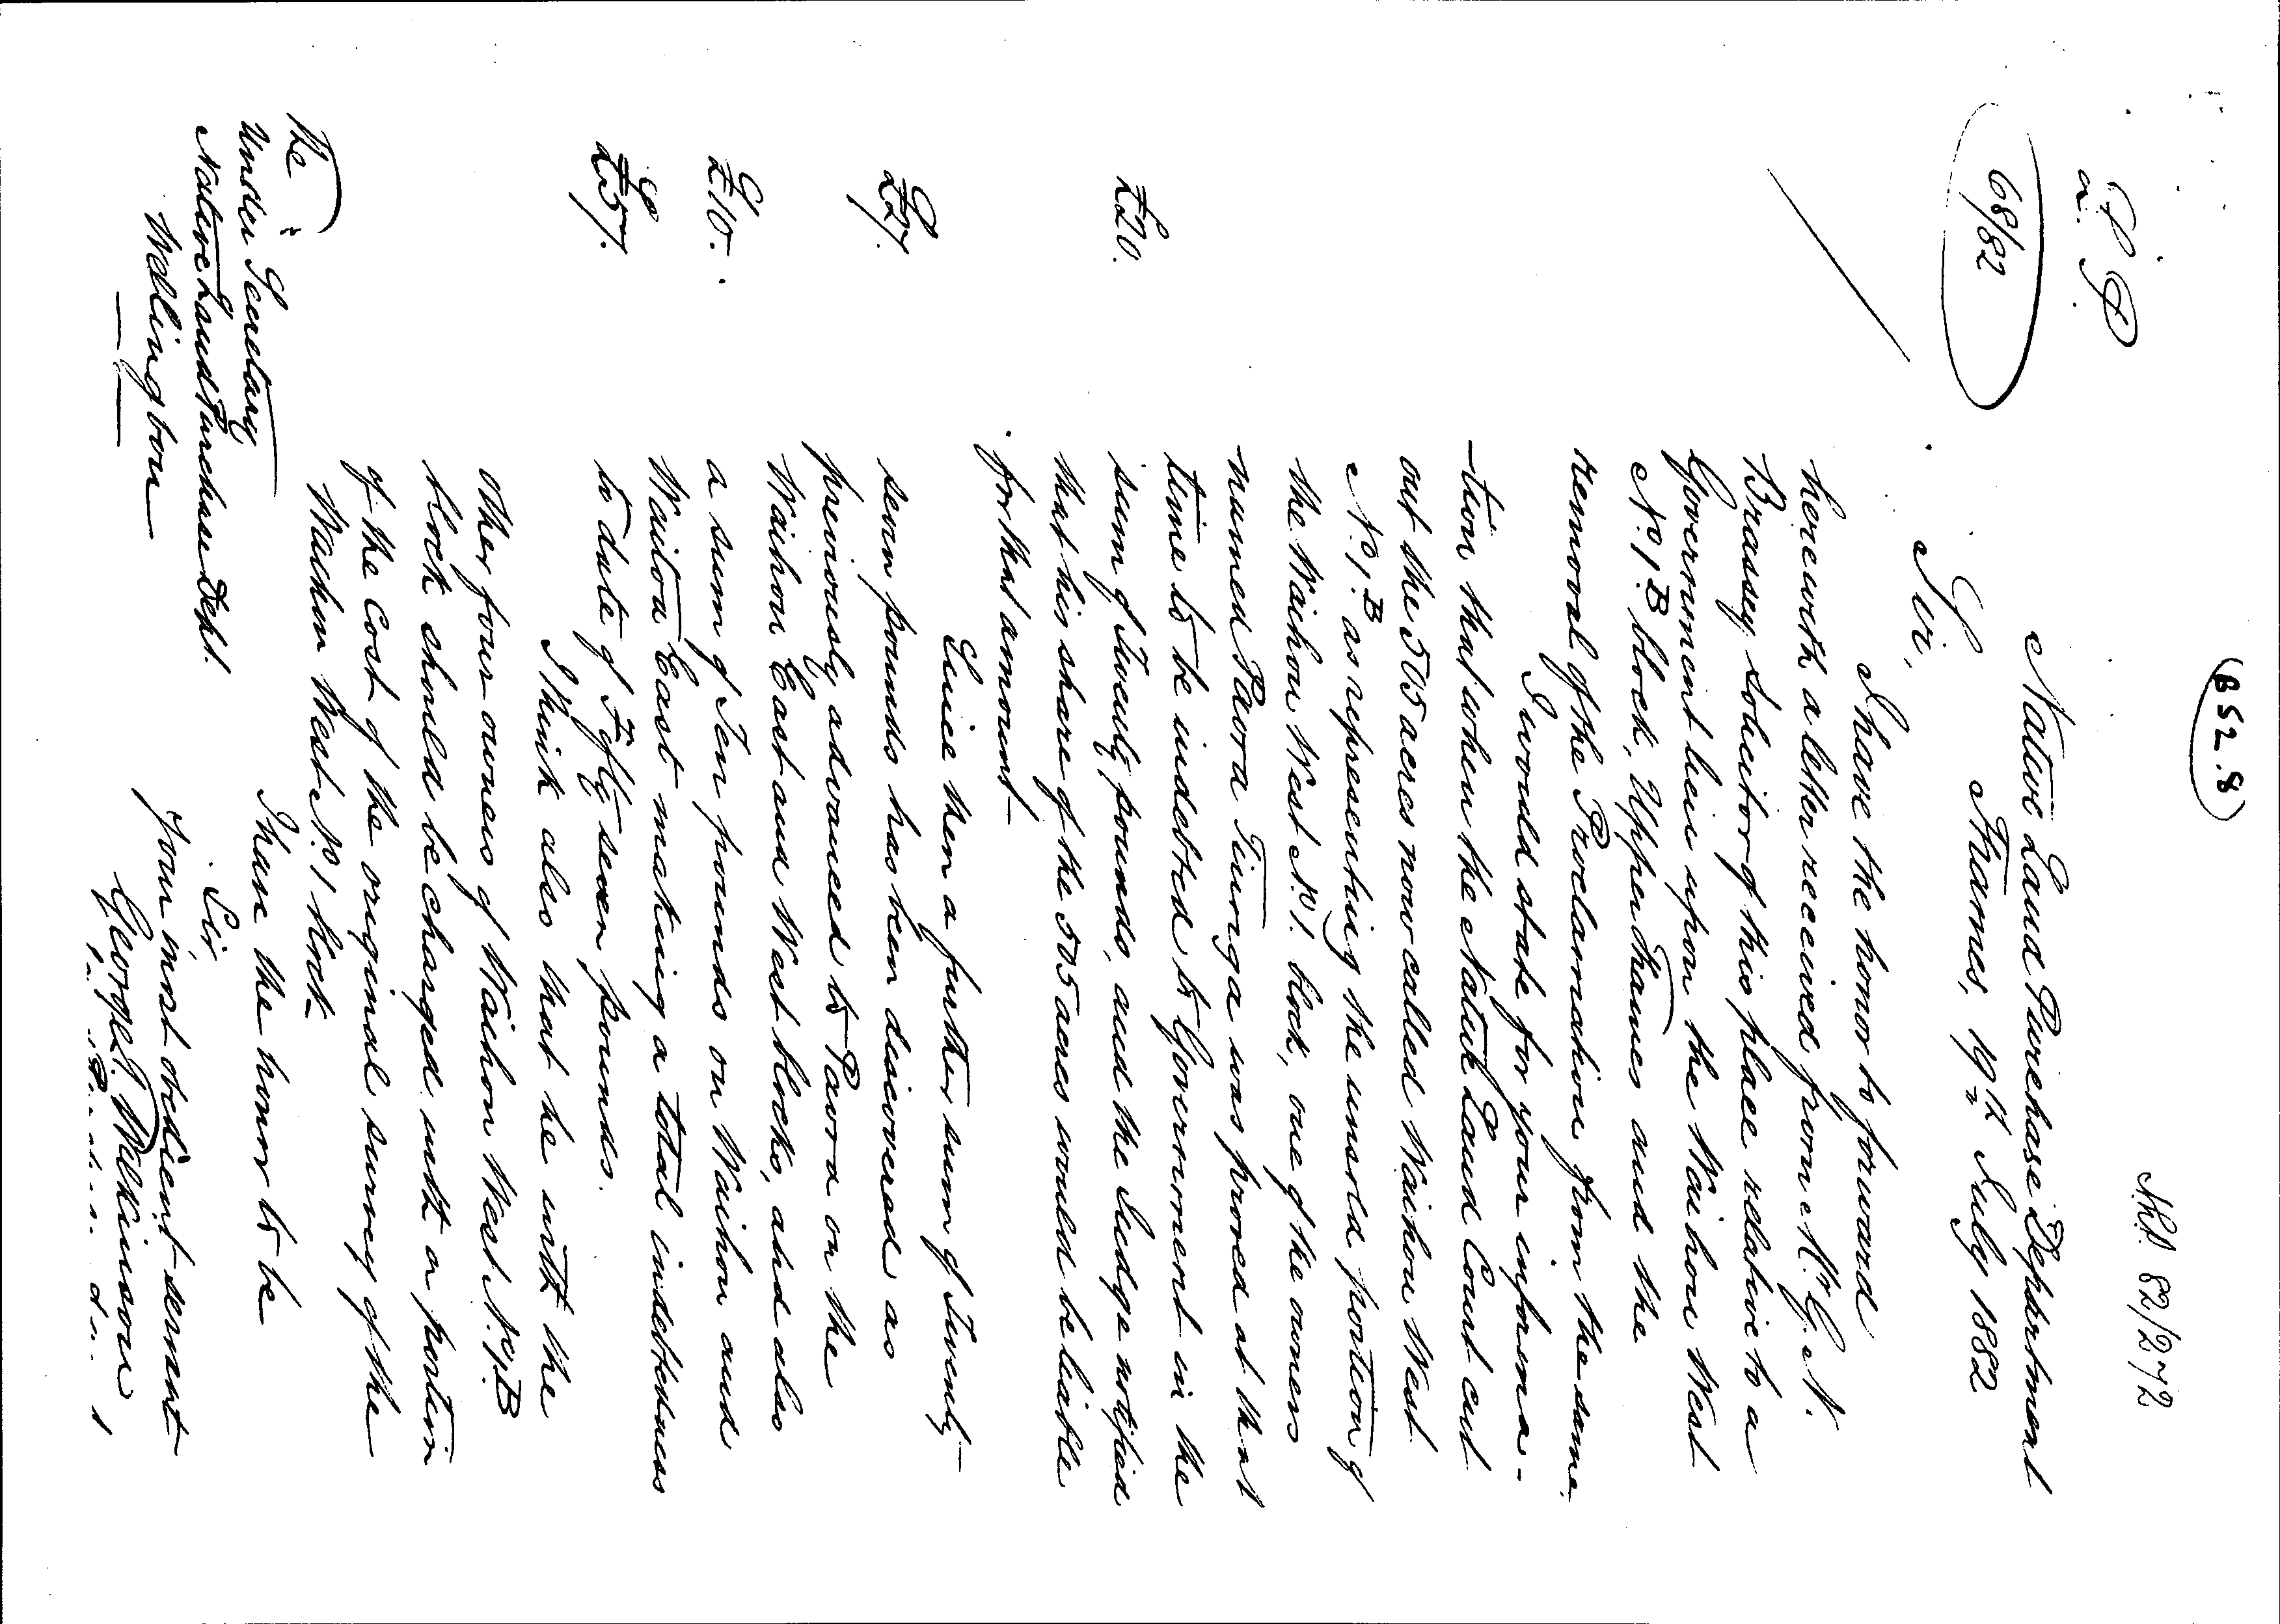 (B52.8)
NLP 82/272
68/82
Native Land Purchase Department
Thames, 19th July 1882
Sir,
I have the honor to forward
herewith a letter received from Mr G. N.
Brassey solicitor of this place relative to a
Government lien upon the Waihou West
No 1.B block, Upper Thames and the
removal of the Proclamation from the same.
I would state for your informa-
-tion that when the Native Land Court cut
out the 505 acres now called Waihou West
No 1.B as representing the unsold portion of
the Waihou West No 1 block, one of the owners
named Paora Tiunga was proved at that
time to be indebted to Government in the
£20. sum of Twenty pounds, and the Judge notified
that his share of the 505 acres would be liable
for that amount-
Since then a further sum of Twenty-
£27. seven pounds has been discovered as
previously advanced to Paora on the
Waihou East and West blocks, and also
£10. a sum of Ten pounds on Waihou and
Waitoa East making a total indebtedness
£57. to date of Fifty seven pounds.
I think also that he with the
other four owners of Waihou West No 1.B
block should be charged with a portion
of the cost of the original survey of the
Waihou West No 1 block
I have the honor to be
Sir,
Your most obedient servant
George T. Wilkinson
The
Under Secretary
Native Land Purchase Dept.
Wellington